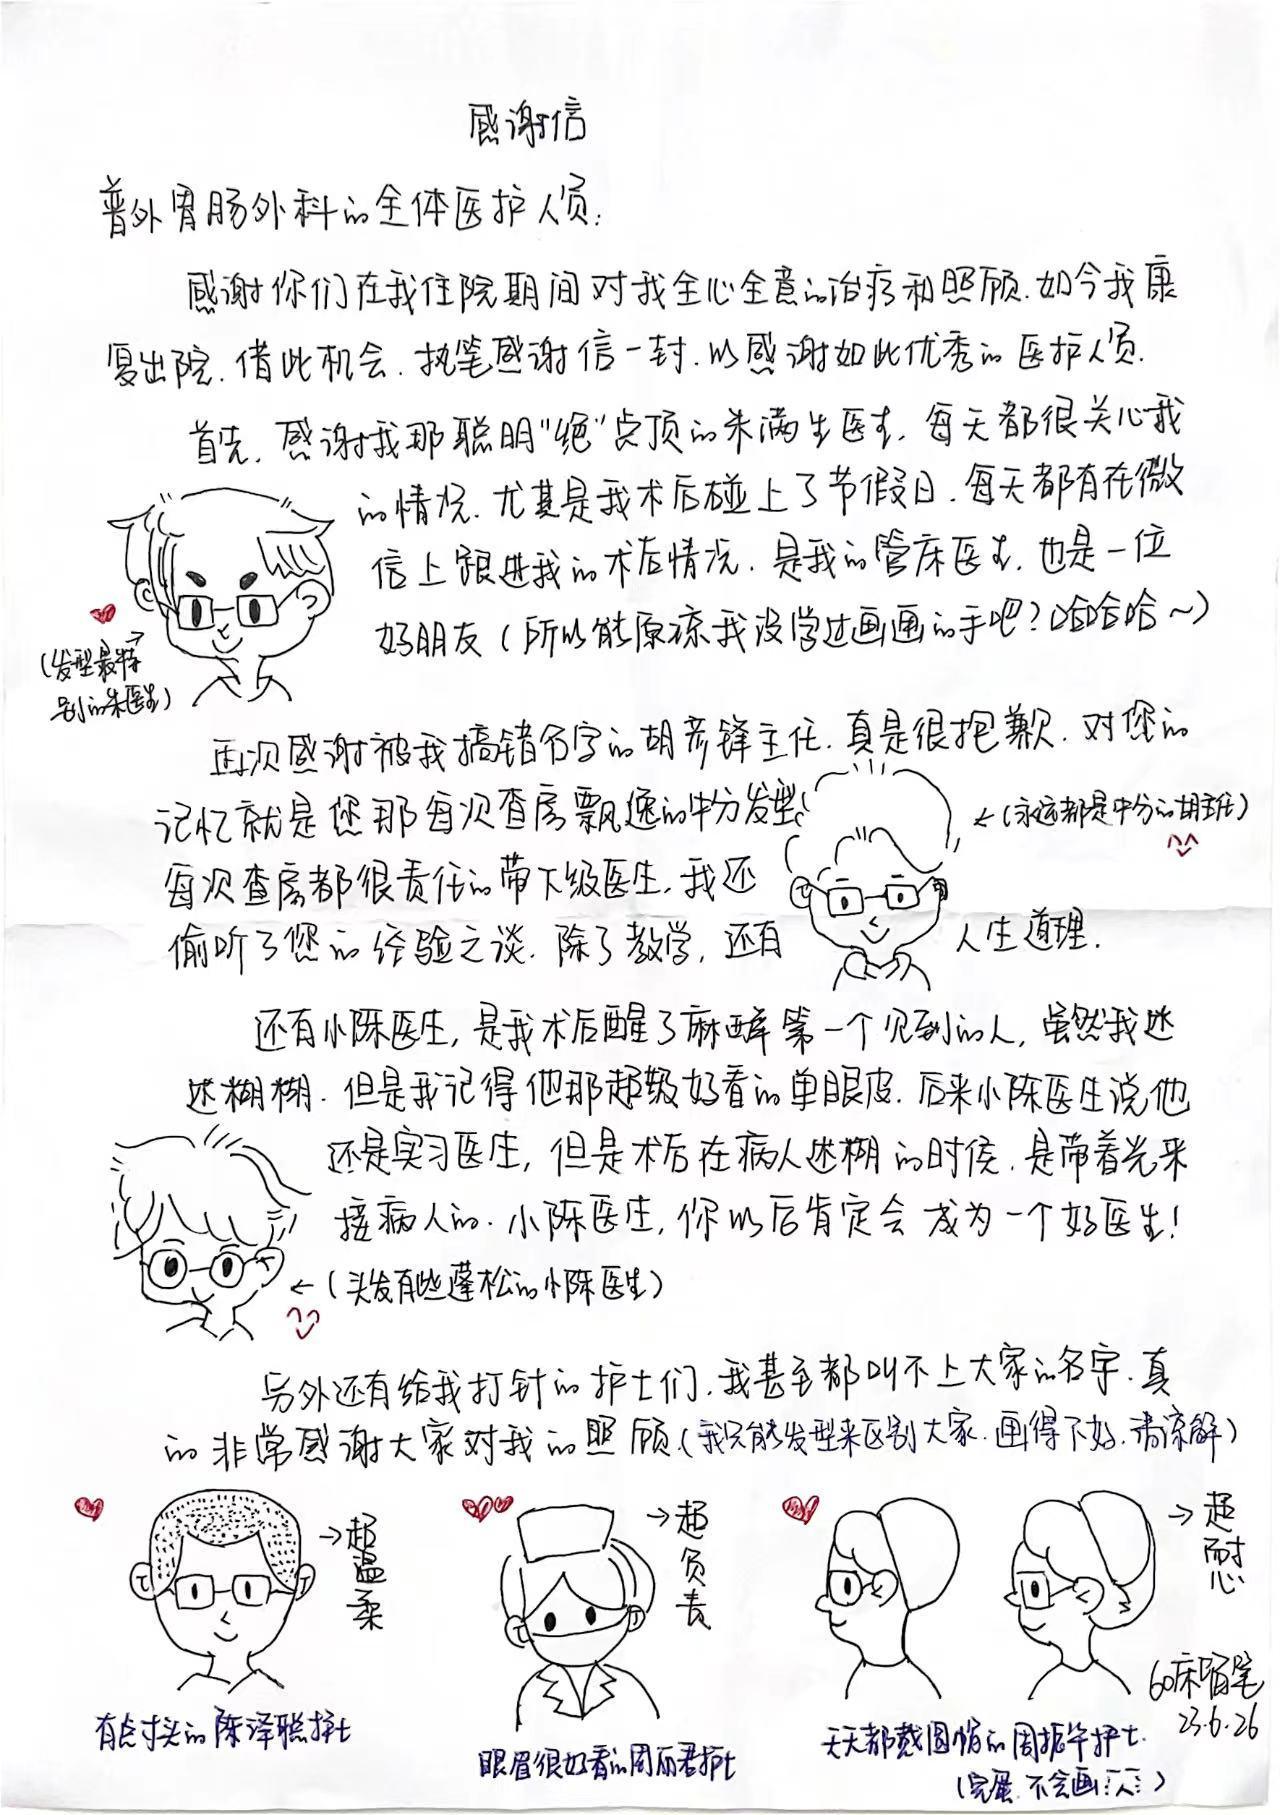 感谢信
普外胃肠外科的全体医护人员:
感谢你们在我住院期间对我全心全意的治疗和照顾.如今我康
复出院.借此机会.执笔感谢信一封.以感谢如此优秀的医护人员.
首先.感谢我那聪明"绝"点顶的朱满生医生,每天都很关心我
的情况.尤其是我术后碰上了节假日.每天都有在微
信上跟进我的术后情况.是我的管床医生.也是一位
好朋友(所以能原谅我没学过画画的手吧?哈哈哈~)
(发型最特
别的朱医生)
再次感谢被我搞错名字的胡彦锋主任.真是很抱歉.对您的
记忆就是您那每次查房飘逸的中分发型
←(永远都是中分的胡主任)
每次查房都很责任的带下级医生,我还
偷听了您的经验之谈.除了教学,还有人生道理.
还有小陈医生,是我术后醒了麻醉第一个见到的人,虽然我迷
迷糊糊.但是我记得他那超级好看的单眼皮.后来小陈医生说他
还是实习医生,但是术后在病人迷糊的时候.是带着光来
接病人的.小陈医生,你以后肯定会成为一个好医生!
←(头发有些蓬松的小陈医生)
另外还有给我打针的护士们.我甚至都叫不上大家的名字.真
的非常感谢大家对我的照顾(我只能发型来区别大家.画得不好.请谅解)
→超温柔
→超负责
→超耐心
有点寸头的陈泽聪护士
眼眉很好看的周丽君护士
天天都戴圆帽的周振华护士.
(完蛋.不会画)
60床陌笔
23.6.26